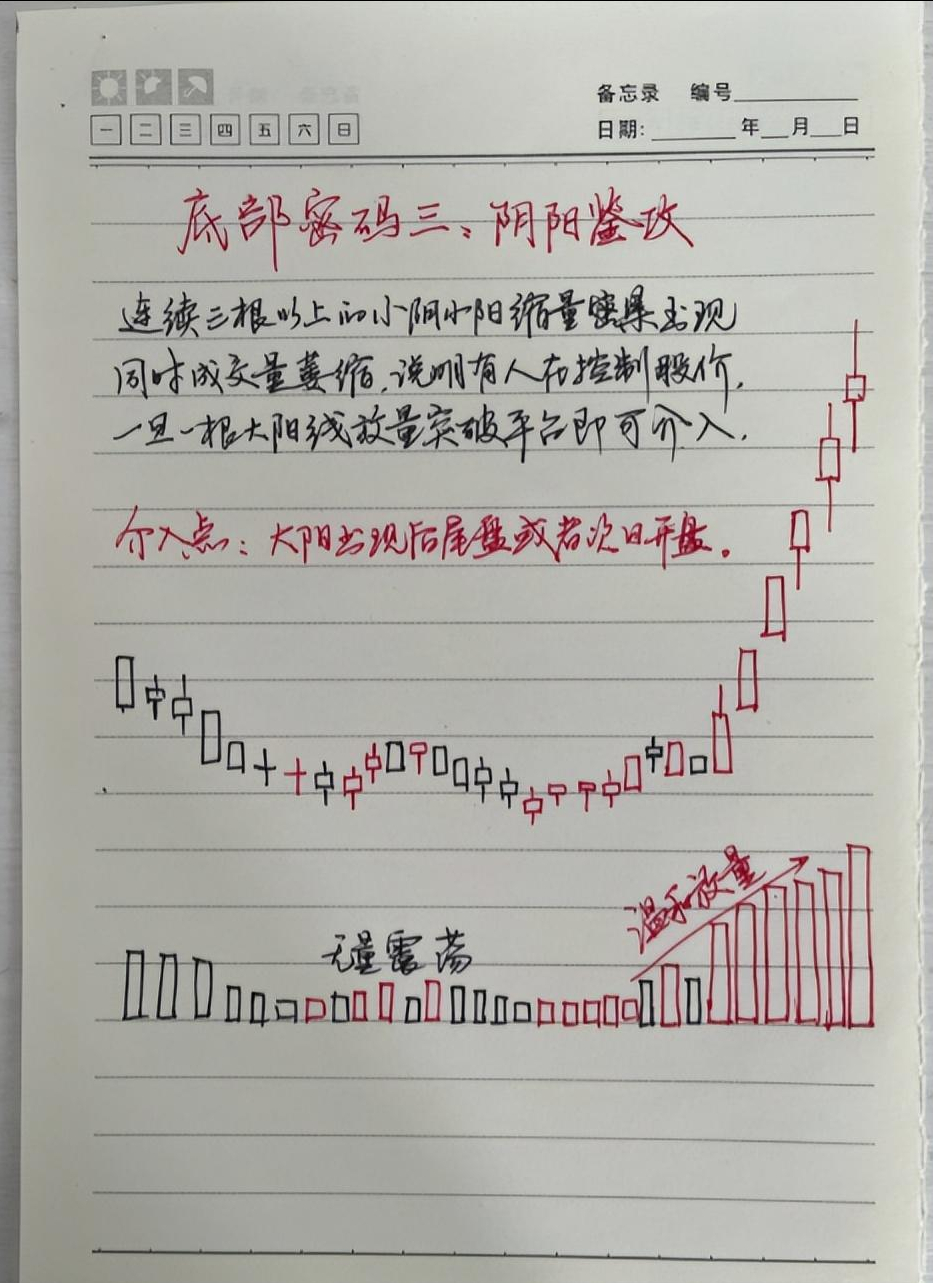 备忘录 编号
一 二 三 四 五 六 日
日期: 年 月 日
底部密码三：阴阳鉴攻
连续三根以上的小阴小阳缩量密集出现
同时成交量萎缩，说明有人在控制股价，
一旦一根大阳线放量突破平台即可介入．
介入点：大阳出现后尾盘或者次日开盘。
温和放量
无量震荡